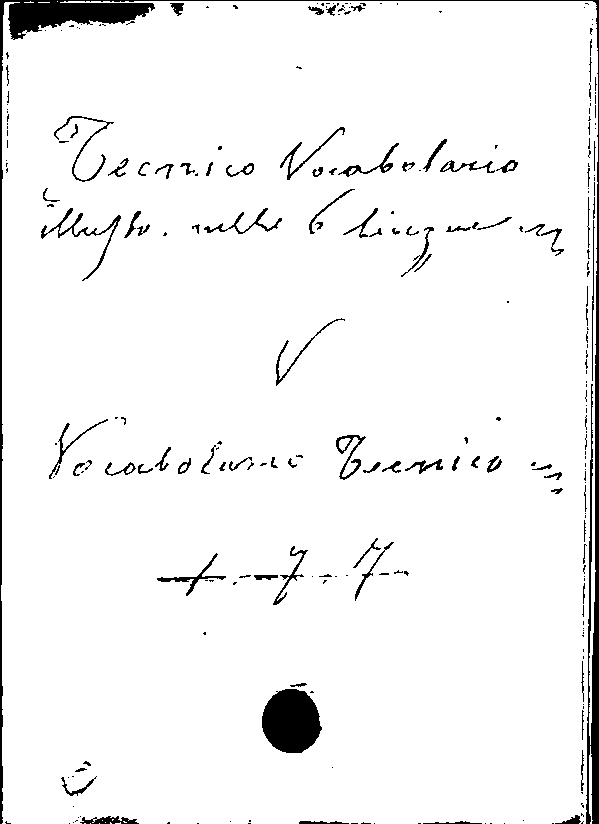 Tecnico Vocabolario
illustr. nelle 6 lingue
V
Vocabolario Tecnico